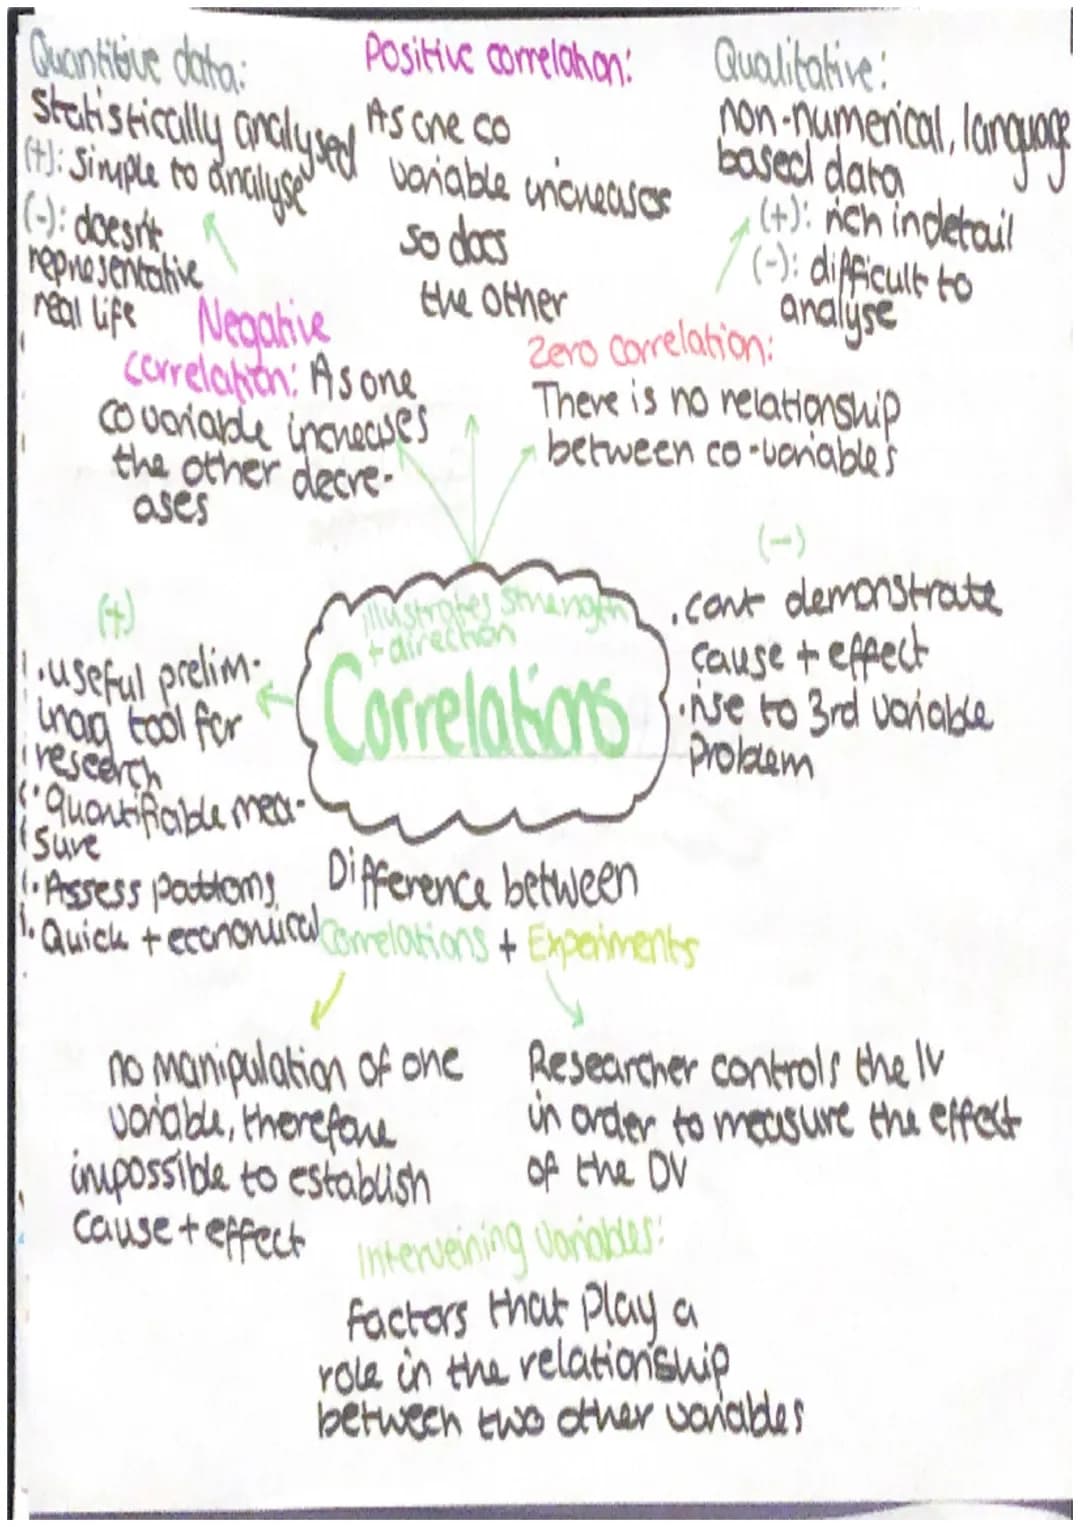 Quantitive data:
statistically analysed
(+): simple to analyse
(-): doesn't
representative
real life
Positive correlation:
As one co
variable increases
so does
the other
Qualitative:
non-numerical, language
based data
(+): rich in detail
(-): difficult to
analyse
Negative
correlation: As one
covariable increases
the other decre-
ases
Zero correlation:
There is no relationship
between co-variables
illustrates strength
+ direction
Correlations
(+)
. useful prelim-
inary tool for
research
. Quantifiable mea-
sure
. Assess patterns
. Quick + economical
(-)
. cant demonstrate
cause + effect
. rise to 3rd variable
problem
Difference between
Correlations + Experiments
no manipulation of one
variable, therefore
impossible to establish
cause + effect
Researcher controls the IV
in order to measure the effect
of the DV
Interveining variables:
factors that play a
role in the relationship
between two other variables